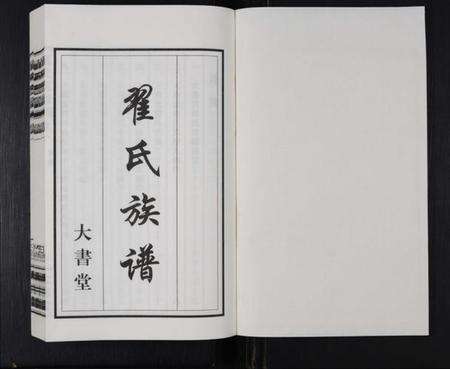 翟氏族谱
大書堂